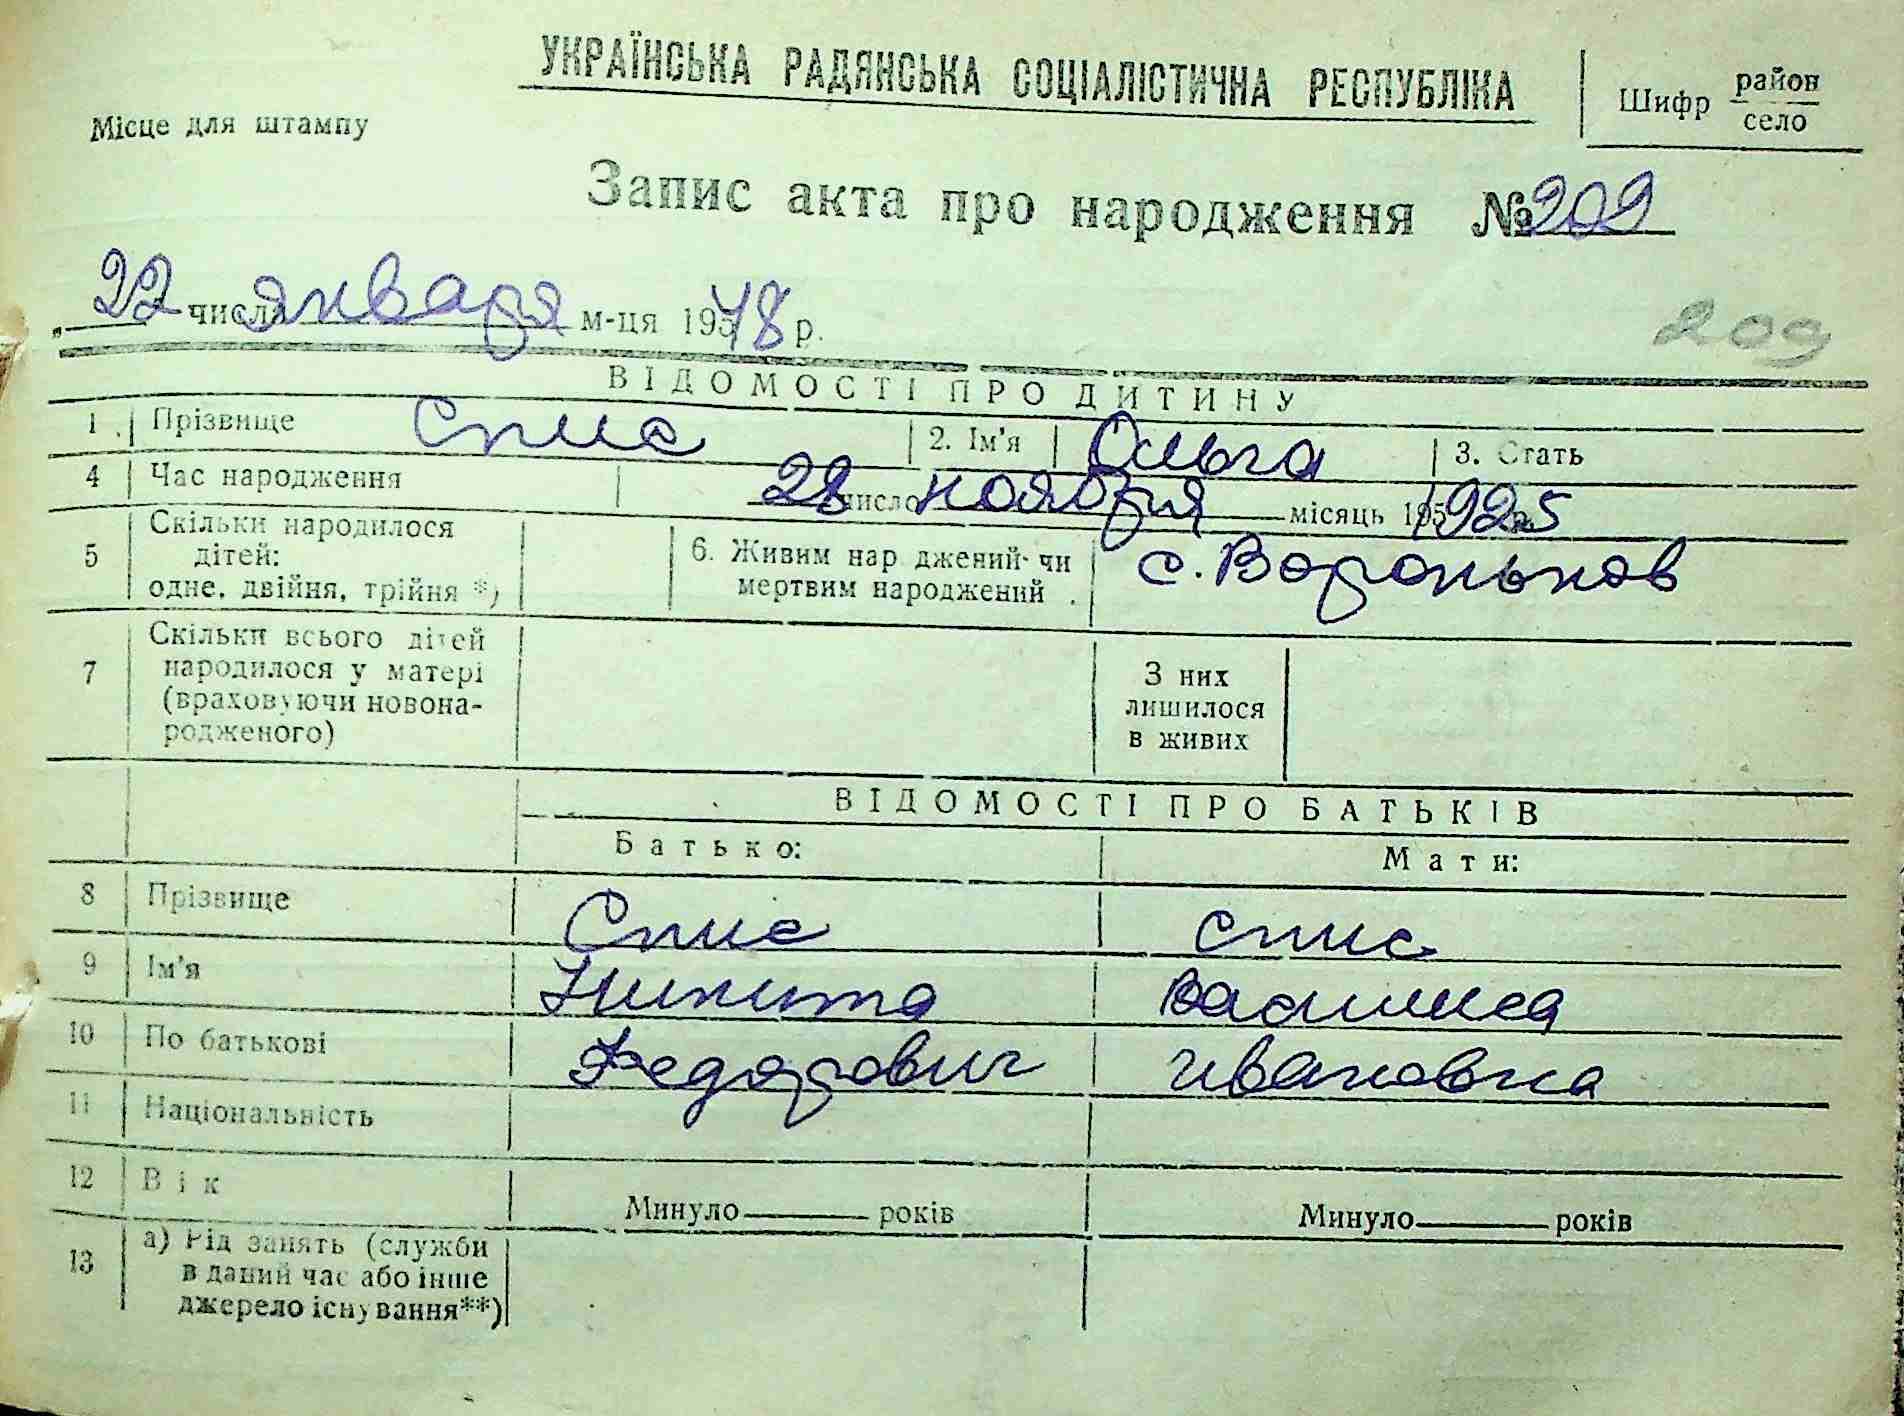 УКРАЇНСЬКА РАДЯНСЬКА СОЦІАЛІСТИЧНА РЕСПУБЛІКА
Шифр район
село
Місце для штампу
Запис акта про народження № 209
„22 числа января м-ця 1978 р.
209
ВІДОМОСТІ ПРО ДИТИНУ
1 Прізвище Спис 2. Ім'я Ольга 3. Стать
4 Час народження 28 число ноября місяць 1925
5 Скільки народилося дітей: одне, двійня, трійня *) 6. Живим народжений чи мертвим народжений с. Вороньков
7 Скільки всього дітей народилося у матері (враховуючи новонародженого) З них лишилося в живих
ВІДОМОСТІ ПРО БАТЬКІВ
Батько: Мати:
8 Прізвище Спис Спис
9 Ім'я Никита Василиса
10 По батькові Федорович Ивановна
11 Національність
12 Вік Минуло років Минуло років
13 а) Рід занять (служби в даний час або інше джерело існування**)